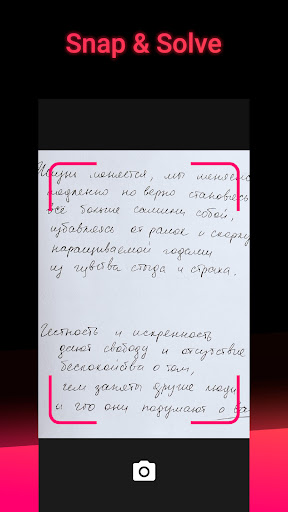 Snap & Solve
Жизни меняется, мы меняемс
медленно но верно становясь
всё больше самими собой,
избавляясь от рамок и скорлу
наращиваемой годами
из чувства стыда и страха.
Честность и искренность
дают свободу и отсутствие
беспокойства о том,
чем заняты другие люди
и что они подумают о ва